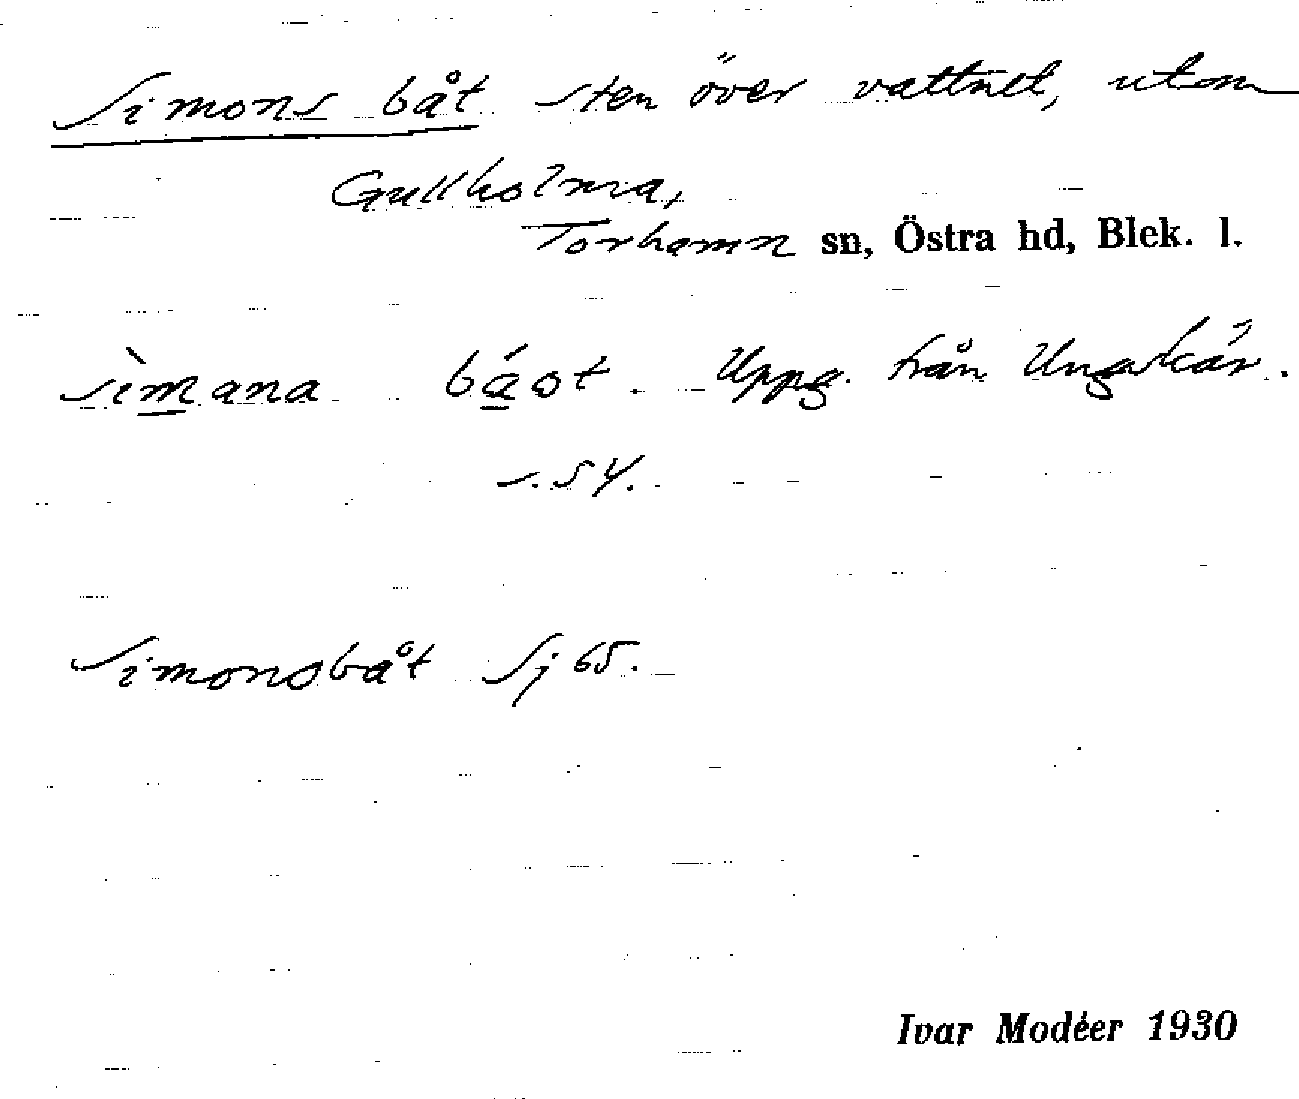 Simons båt sten över vattnet, utom
Gullholma,
Torhamn sn, Östra hd, Blek. l.
sìmana báot. Uppg. från Ungskär.
s. 54.
Simonsbåt Sj 65.
Ivar Modéer 1930